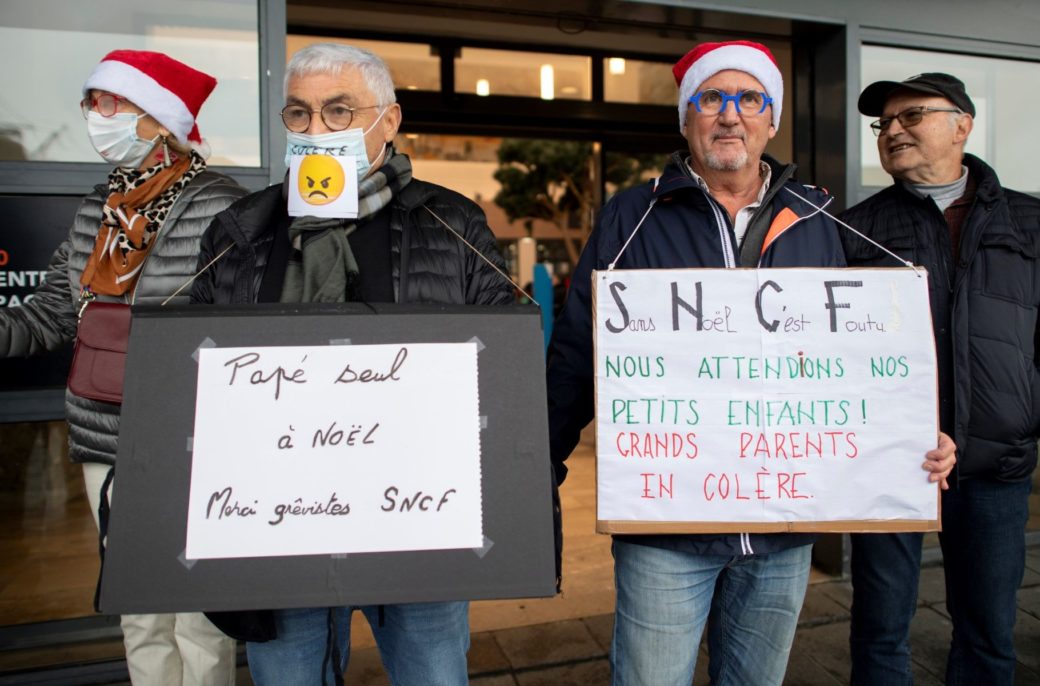 COLERE
Papé seul
à NOËL
Merci grêvistes SNCF
Sans Noël C'est Foutu !
NOUS ATTENDiONS NOS
PETITS ENFANTS !
GRANDS PARENTS
EN COLÈRE.